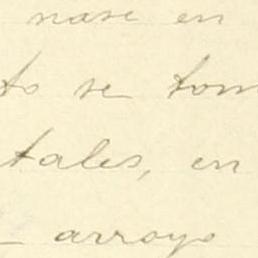 nase en
to se tom
tales, en
arroyo